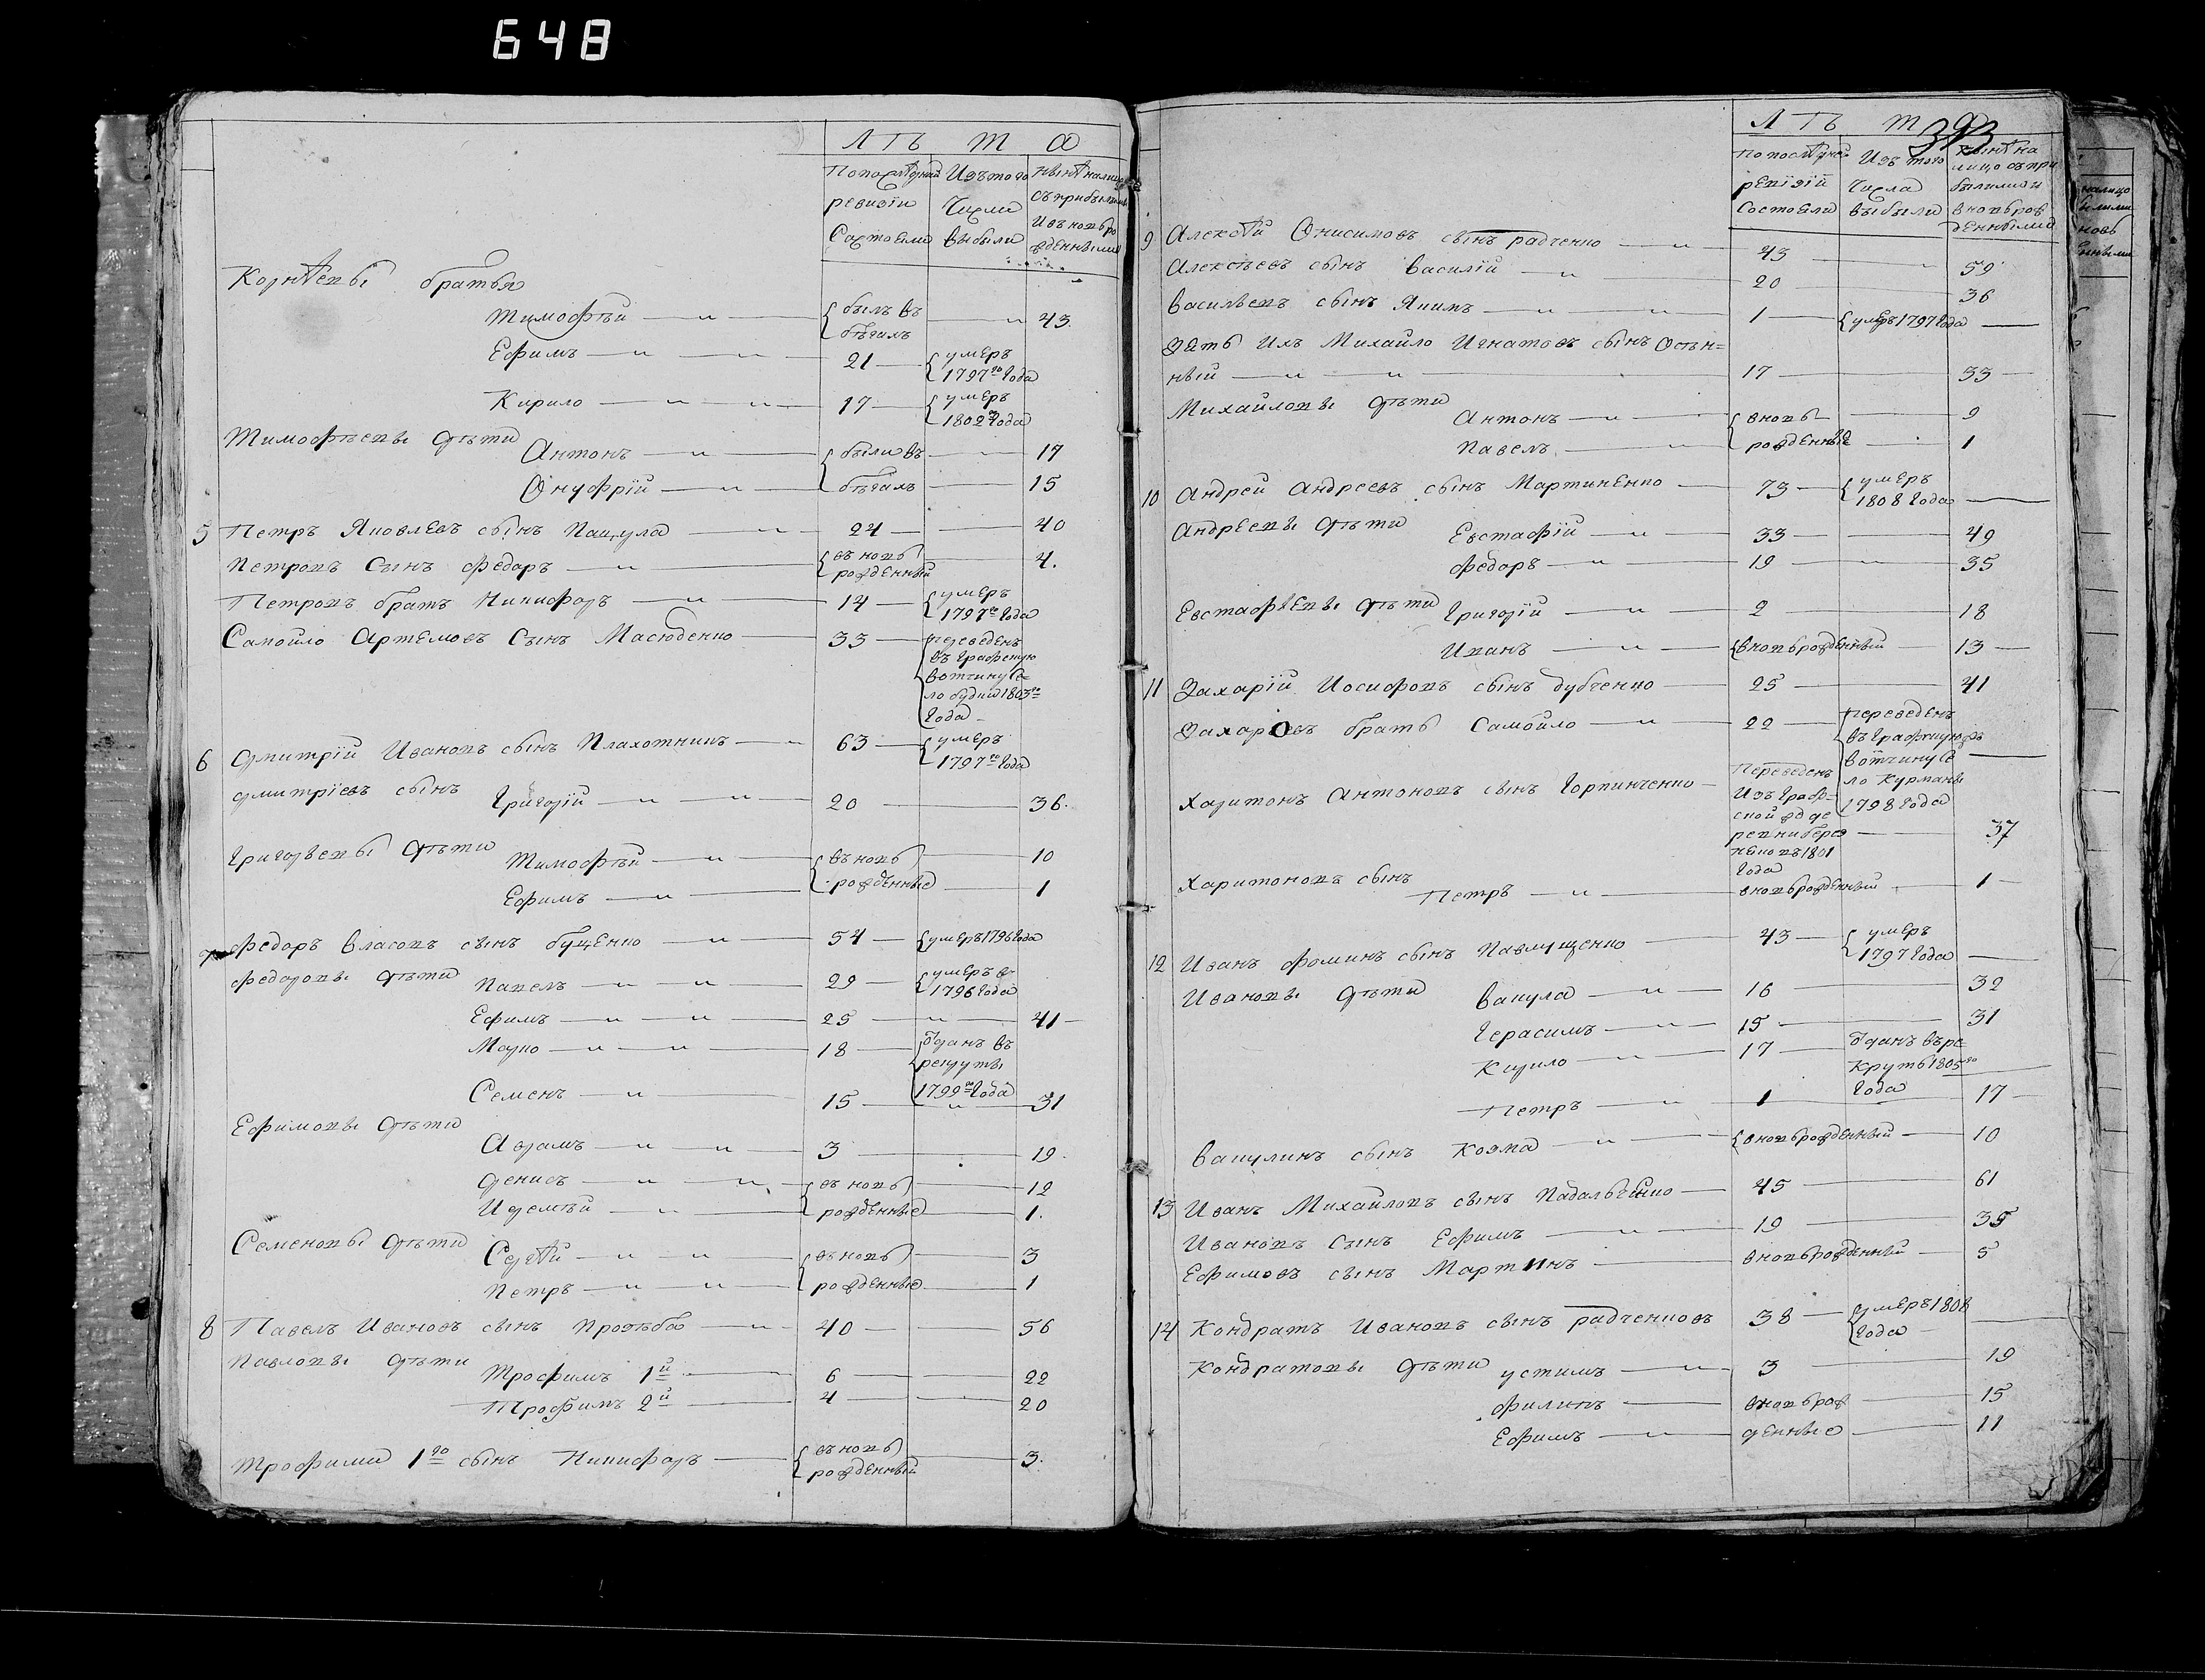 648
Лѣта
По последней ревизіи состояли
Изъ того числа выбыли
Нынѣ на лицо съ прибылыми и вновь рожденными
Корнѣевы братья
Тимофѣй — былъ въ бѣгахъ — 43.
Ефимъ — 21 — умеръ 1797го Года
Кирило — 17 — умеръ 1802го Года
Тимофѣевы дѣти
Антонъ — были въ — 17
Онуфрій — бѣгахъ — 15
5 Петръ Яковлевъ сынъ Пацула — 24 — 40
Петровъ Сынъ Федоръ — въ новь рожденный — 4.
Петровъ братъ Никифоръ — 14 — умеръ 1797го Года
Самойло Артемовъ Сынъ Масюденко — 33 — переведенъ въ Графскую вотчину село 1803го Года
6 Дмитрій Ивановъ сынъ Плахотникъ — 63 — умеръ 1797го Года
Дмитріевъ сынъ Григорій — 20 — 36.
Григорьевы дѣти
Тимофѣй — въ новь — 10
Ефимъ — рожденные — 1
7 Федоръ Власовъ сынъ Буценко — 54 — умеръ 1796 Года
Федоровы дѣти
Павелъ — 29 — умеръ в 1796 Года
Ефимъ — 25 — 41
Марко — 18 — Отданъ въ рекруты 1799го Года
Семенъ — 15 — 31
Ефимовы дѣти
Аврамъ — 3 — 19.
Денисъ — въ новь — 12
Иремѣй — рожденные — 1.
Семеновы дѣти
Сергѣй — въ новь — 3
Петръ — рожденные — 1
8 Павелъ Ивановъ сынъ — 40 — 56
Павловы дѣти
Трофимъ 1й — 6 — 22
Трофимъ 2й — 4 — 20
Трофима 1го сынъ Никифоръ — въ новь рожденный — 3.
393
Лѣта
По последней ревізіи состояли
Изъ того числа выбыли
Нынѣ на лицо съ прибылыми и вновь рожденными
9 Алексѣй Онисимовъ сынъ Радченко — 43 — 59
Алексѣевъ сынъ Василій — 20 — 36
Васильевъ сынъ Якимъ — 1 — умеръ 1797 Года
Зять ихъ Михайло Игнатовъ сынъ
ный — 17 — 33
Михайловы дѣти
Антонъ — вновь — 9
Павелъ — рожденные — 1
10 Андрей Андреевъ сынъ Мартиненко — 73 — умеръ 1808 Года
Андреевы дѣти
Евстафій — 33 — 49
Федоръ — 19 — 35
Евстафѣевы дѣти
Григорій — 2 — 18
Иванъ — вновь рожденный — 13
11 Захарій Иосифовъ сынъ Дубченко — 25 — 41
Захаровъ братъ Самойло — 22 — переведенъ въ Графскую вотчину село Курманы 1798 Года
Харитонъ Антоновъ сынъ Горпинченко — Переведенъ изъ Графской деревни 1801 Года — 37
Харитоновъ сынъ
Петръ — вновь рожденный — 1
12 Иванъ Фоминъ сынъ Павлущенко — 43 — умеръ 1797 Года
Ивановы дѣти
Вакула — 16 — 32
Герасимъ — 15 — 31
Кирило — 17 — Отданъ въ рекруты 1805го Года
Петръ — 1 — 17
Вакулинъ сынъ Козма — вновь рожденный — 10
13 Иванъ Михайловъ сынъ Падальченко — 45 — 61
Ивановъ Сынъ Ефимъ — 19 — 35
Ефимовъ сынъ Мартинъ — вновь рожденный — 5
14 Кондратъ Ивановъ сынъ Радченковъ — 38 — умеръ 1808 Года
Кондратовы дѣти
Устимъ — 3 — 19
Филипъ — вновь рож — 15
Ефимъ — денные — 11